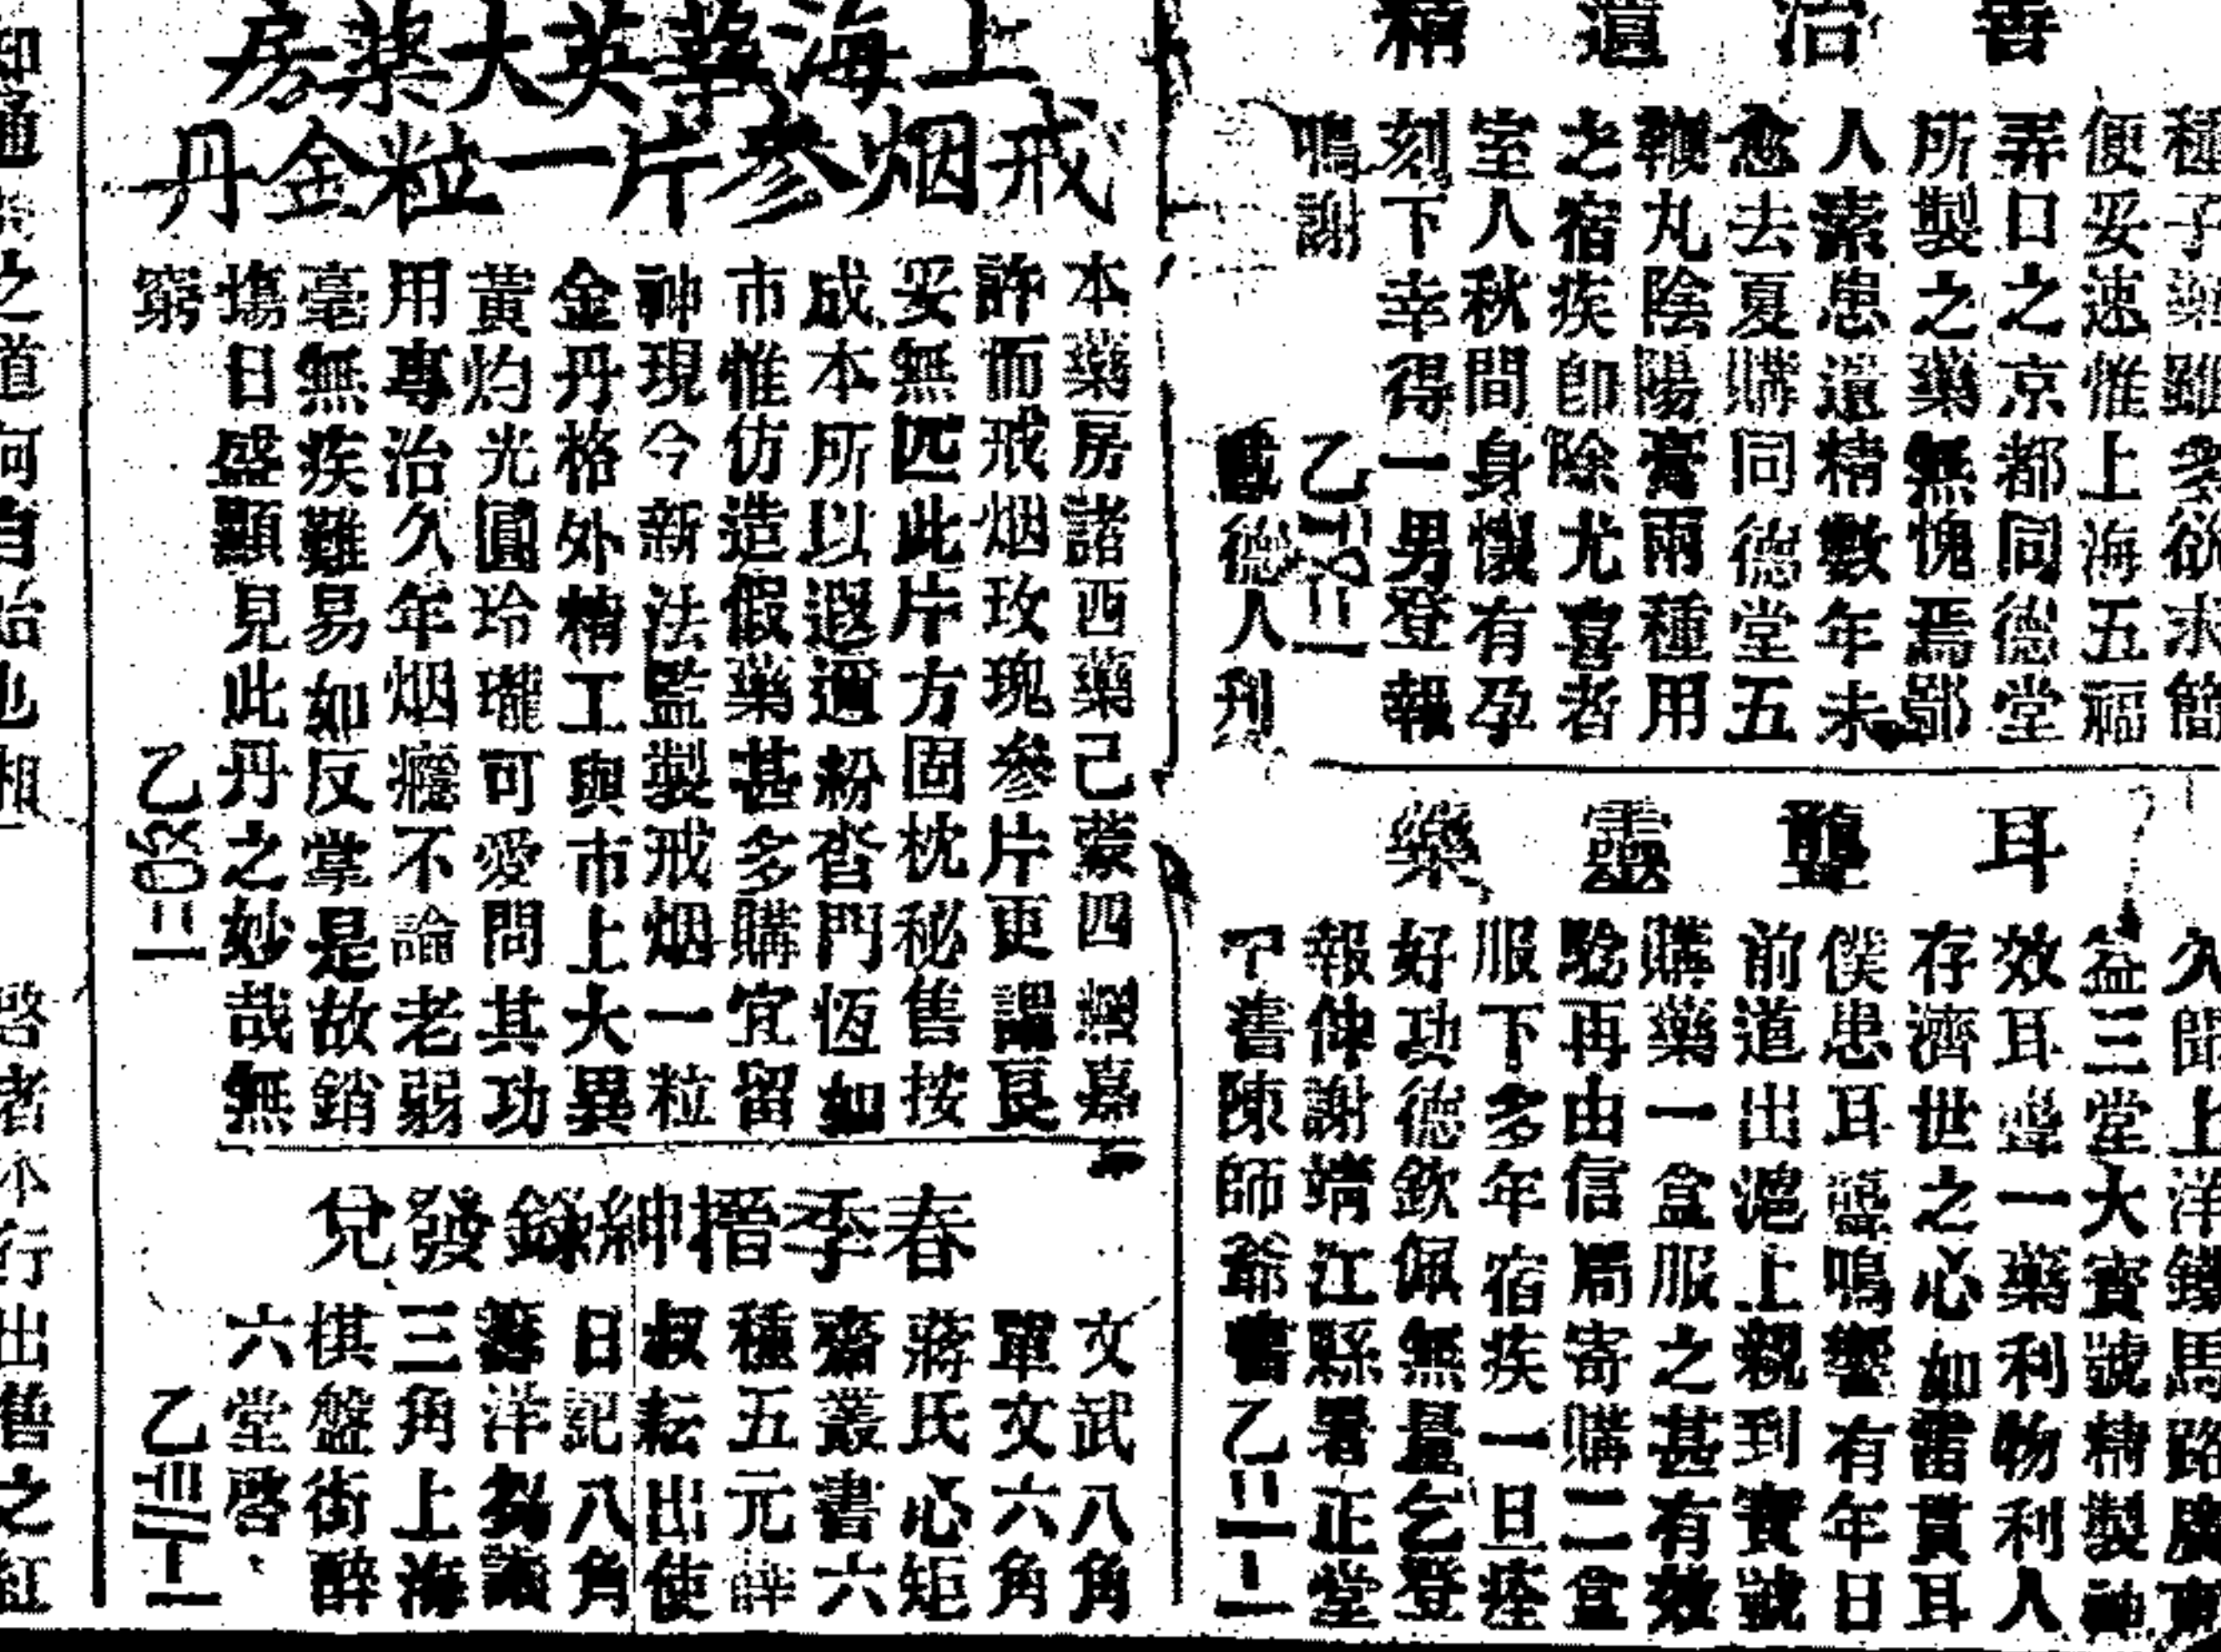 善治遺精
種子藥雖多欲求簡
便妥速惟上海五福
弄口之京都同德堂
所製之藥無愧焉鄙
人素患遺精數年未
愈去夏購同德堂五
鞭丸陰陽膏兩種用
之宿疾卽除尤喜者
室人秋間身懷有孕
刻下幸得一男登報
鳴謝
乙
感德人刋
耳聾靈藥
久聞上洋鐵馬路廣東
益三堂大寶號精製神
效耳聾一藥利物利人
存濟世之心如雷貫耳
僕患耳聾鳴響有年日
前道出滬上親到寶號
購藥一盒服之甚有效
驗再由信局寄購二盒
服下多年宿疾一旦痊
好功德欽佩無量乞登
報伸謝靖江縣署正堂
書陳師爺 乙
上海華英大藥房
戒烟參片一粒金丹
本藥房諸西藥己蒙四 嘉
許而戒烟玫瑰參片更謂良
妥無匹此片方固枕秘售按
成本所以遐邇紛沓門恆如
市惟仿造假藥甚多購宜留
神現今新法監製戒烟一粒
金丹格外精工與市上大異
黃灼光圓玲瓏可愛問其功
用專治久年烟癮不論老弱
毫無疾難易如反掌是故銷
塲日盛顯見此丹之妙哉無
窮
乙
春季搢紳錄發兌
文武八角
單文六角
蔣氏心矩
齋叢書六
種五元薛
叔耘出使
日記八角
籌洋芻議
三角上海
棋盤街醉
六堂啓
乙
知通 之道何自始也相
啓者本行出售之紅